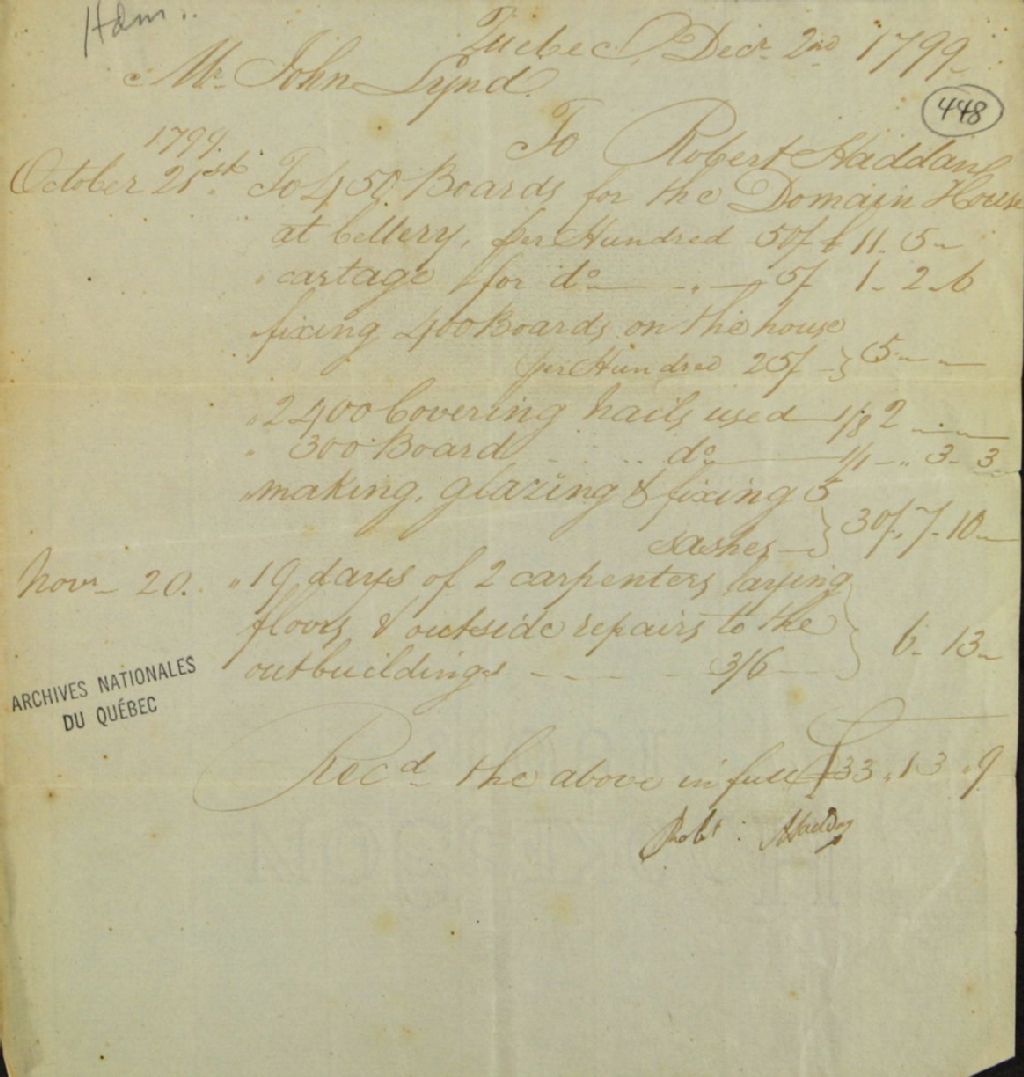 Hdm..
Quebec, Decr. 2nd 1799
Mr. John Lynd.
448
To Robert Haddan
1799.
October 21st. To 450 Boards for the Domain House
at Cellery, per Hundred 50/ £ 11. 5 "
" cartage for do. — " — 5/ 1 " 2 " 6
" fixing 400 Boards on the house
per Hundred 25/ - } 5 " — "
" 2400 Covering nails used — 1/8 2 " — "
" 300 Board do. — 1/1 — " 3 " 3
" making, glazing & fixing 5
sashes — } 30/. 7 " 10 "
Novr. 20. " 19 days of 2 carpenters laying
floors, & outside repairs to the
outbuildings - - - - 3/6 - } 6 " 13 "
ARCHIVES NATIONALES
DU QUÉBEC
Recd. the above in full £33 " 13 " 9
Robt. Haddan